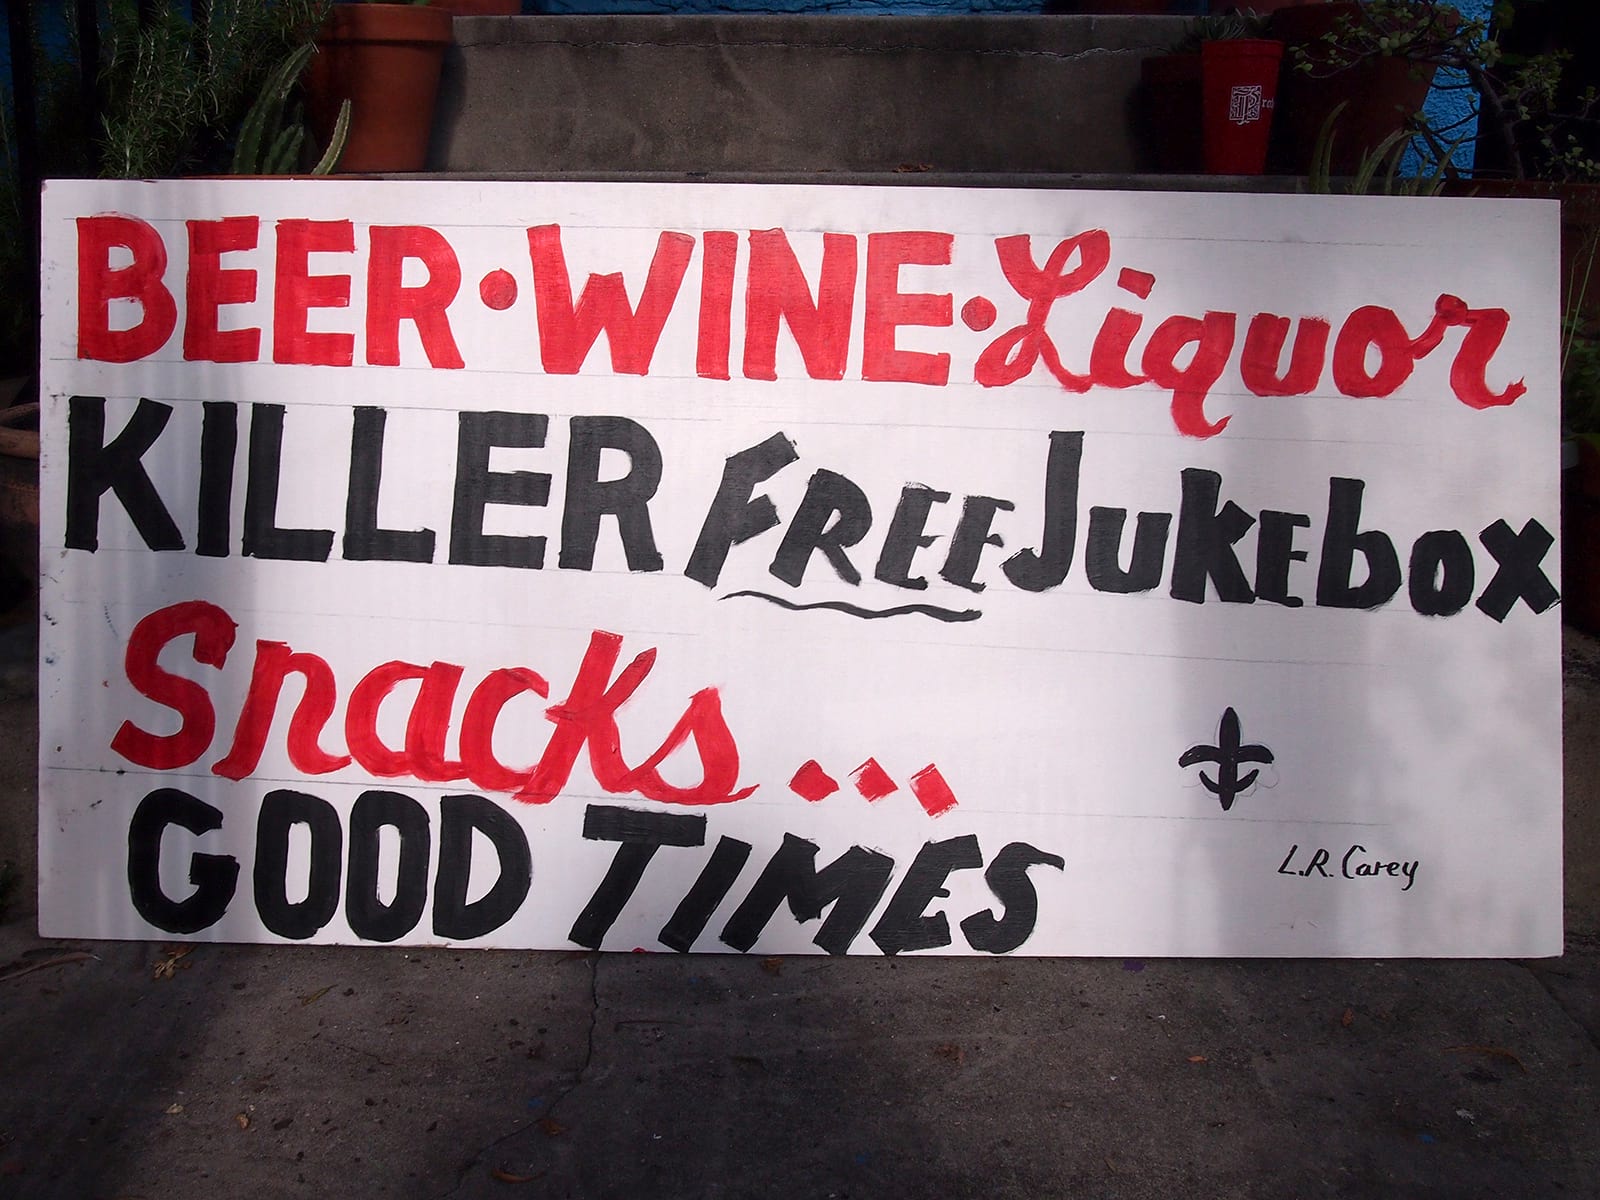 BEER • WINE • Liquor
KILLER FREE JUKEbox
Snacks...
GOOD TIMES
L.R. Carey